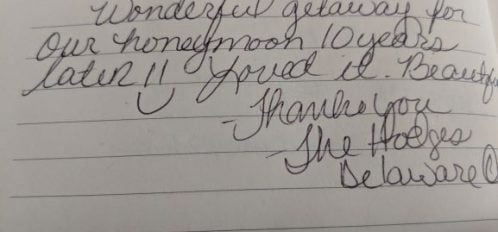 Wonderful getaway for
our honeymoon 10 years
later!! Loved it. Beautifu
- Thank you
- The Hodges
Delaware